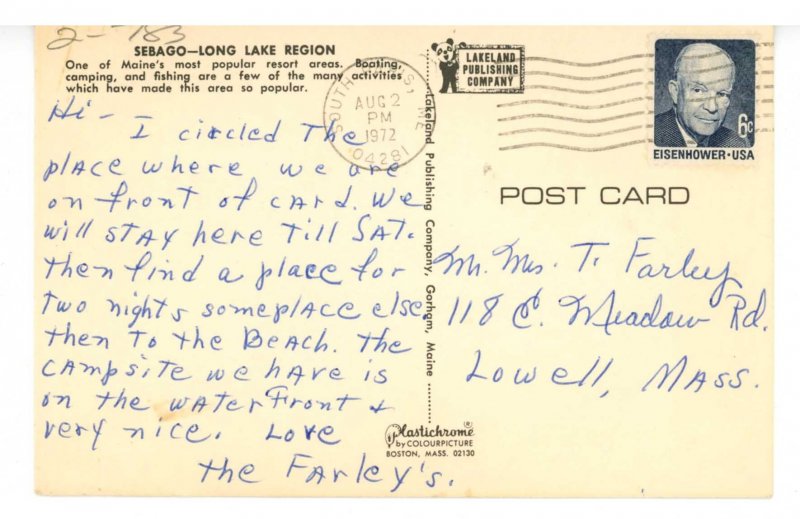 2-783
SEBAGO—LONG LAKE REGION
One of Maine's most popular resort areas. Boating,
camping, and fishing are a few of the many activities
which have made this area so popular.
Hi-
I circled The
place where we are
on front of card. We
will stay here Till Sat.
Then find a place for
two nights someplace else
then To the Beach. The
campsite we have is
on the waterfront &
very nice. Love
the Farley's.
Lakeland Publishing Company, Gorham, Maine
LAKELAND
PUBLISHING
COMPANY
SOUTH
ME
AUG 2
PM
1972
04281
6c
EISENHOWER·USA
POST CARD
M. Mrs. T. Farley
118 E. Meadow Rd.
Lowell, Mass.
Plastichrome®
by COLOURPICTURE
BOSTON, MASS. 02130